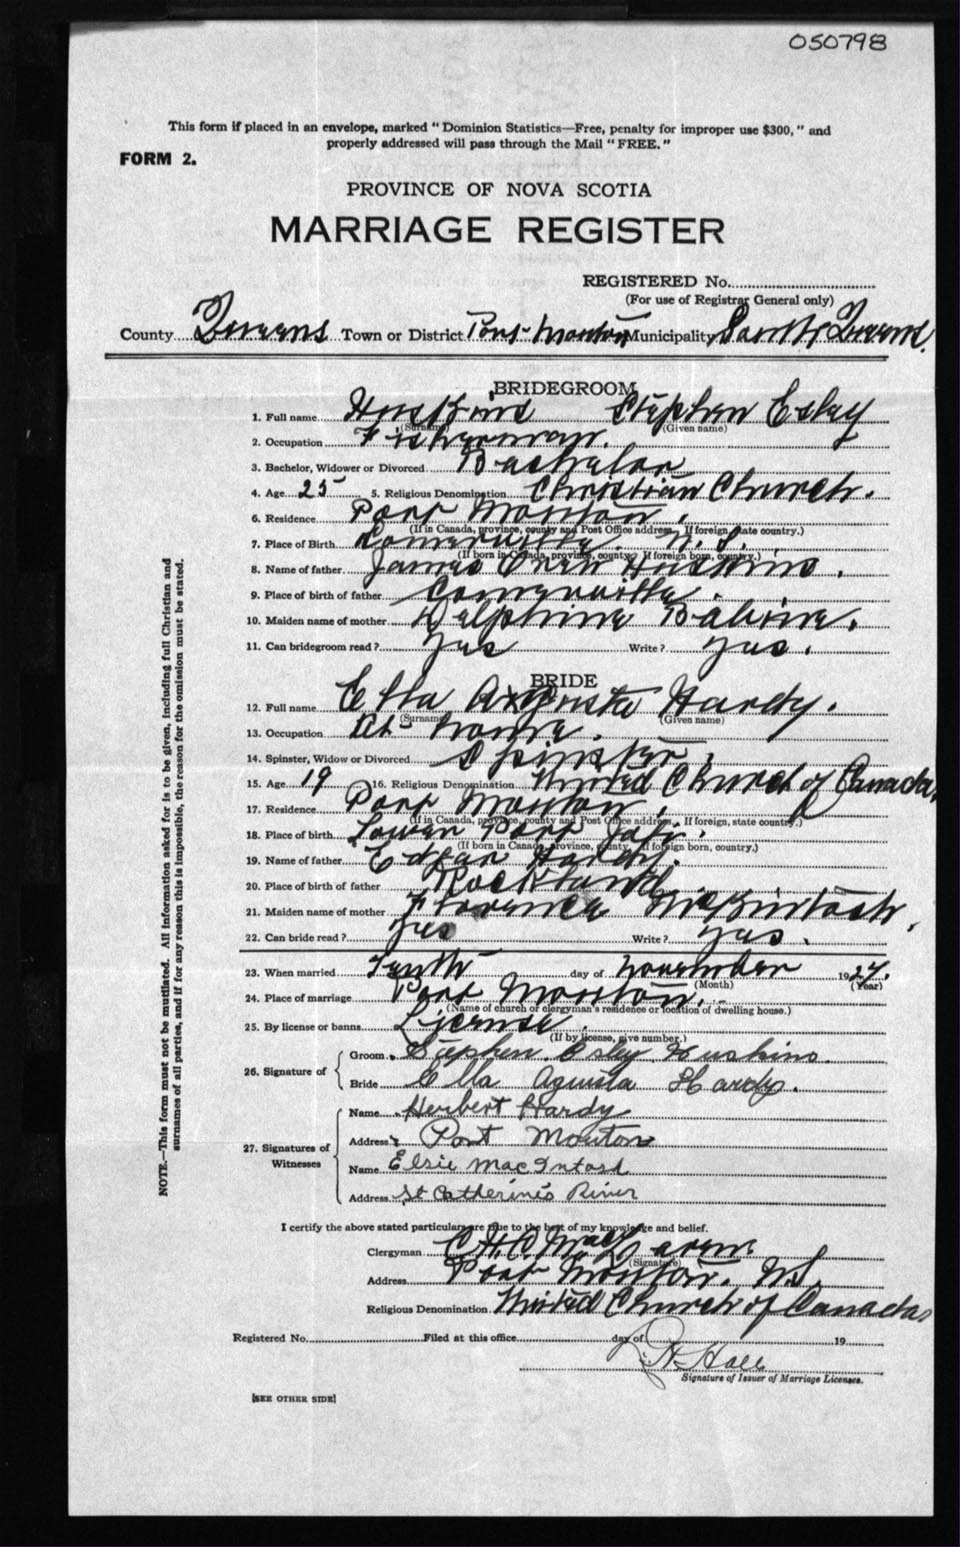 050798
This form if placed in an envelope, marked "Dominion Statistics—Free, penalty for improper use $300," and
properly addressed will pass through the Mail "FREE."
FORM 2.
PROVINCE OF NOVA SCOTIA
MARRIAGE REGISTER
REGISTERED No.
(For use of Registrar General only)
County Queens Town or District Port Mouton Municipality Queens
BRIDEGROOM
1. Full name Huskins Stephen Esley
(Surname) (Given name)
2. Occupation Fisherman.
3. Bachelor, Widower or Divorced Bachelor
4. Age 25 5. Religious Denomination Christian Church.
6. Residence Port Mouton.
(If in Canada, province, county and Post Office address. If foreign, state country.)
7. Place of Birth N. S.
(If born in Canada, province, county. If foreign born, country.)
8. Name of father James Huskins.
9. Place of birth of father
10. Maiden name of mother Delphine
11. Can bridegroom read? Yes Write? Yes.
BRIDE
12. Full name Ella Hardy.
(Surname) (Given name)
13. Occupation At home.
14. Spinster, Widow or Divorced Spinster.
15. Age 19 16. Religious Denomination United Church of Canada.
17. Residence Port Mouton.
(If in Canada, province, county and Post Office address. If foreign, state country.)
18. Place of birth Lower Port
(If born in Canada, province, county. If foreign born, country.)
19. Name of father Edgar Hardy.
20. Place of birth of father Rockland
21. Maiden name of mother Florence McKintosh.
22. Can bride read? Yes Write? Yes.
23. When married Tenth day of November 1927.
(Month) (Year)
24. Place of marriage Port Mouton.
(Name of church or clergyman's residence or location of dwelling house.)
25. By license or banns License.
(If by license, give number.)
26. Signature of Groom Stephen Esley Huskins.
Bride Ella Agusta Hardy.
27. Signatures of Witnesses Name Herbert Hardy
Address Port Mouton
Name Elsie MacIntosh
Address St Catherines River
I certify the above stated particulars are true to the best of my knowledge and belief.
Clergyman C. H. C.
(Signature)
Address Port Mouton. N.S.
Religious Denomination United Church of Canada
Registered No. Filed at this office day of 19
Hall
Signature of Issuer of Marriage Licenses.
[SEE OTHER SIDE]
NOTE.—This form must not be mutilated. All information asked for is to be given, including full Christian and
surnames of all parties, and if for any reason this is impossible, the reason for the omission must be stated.